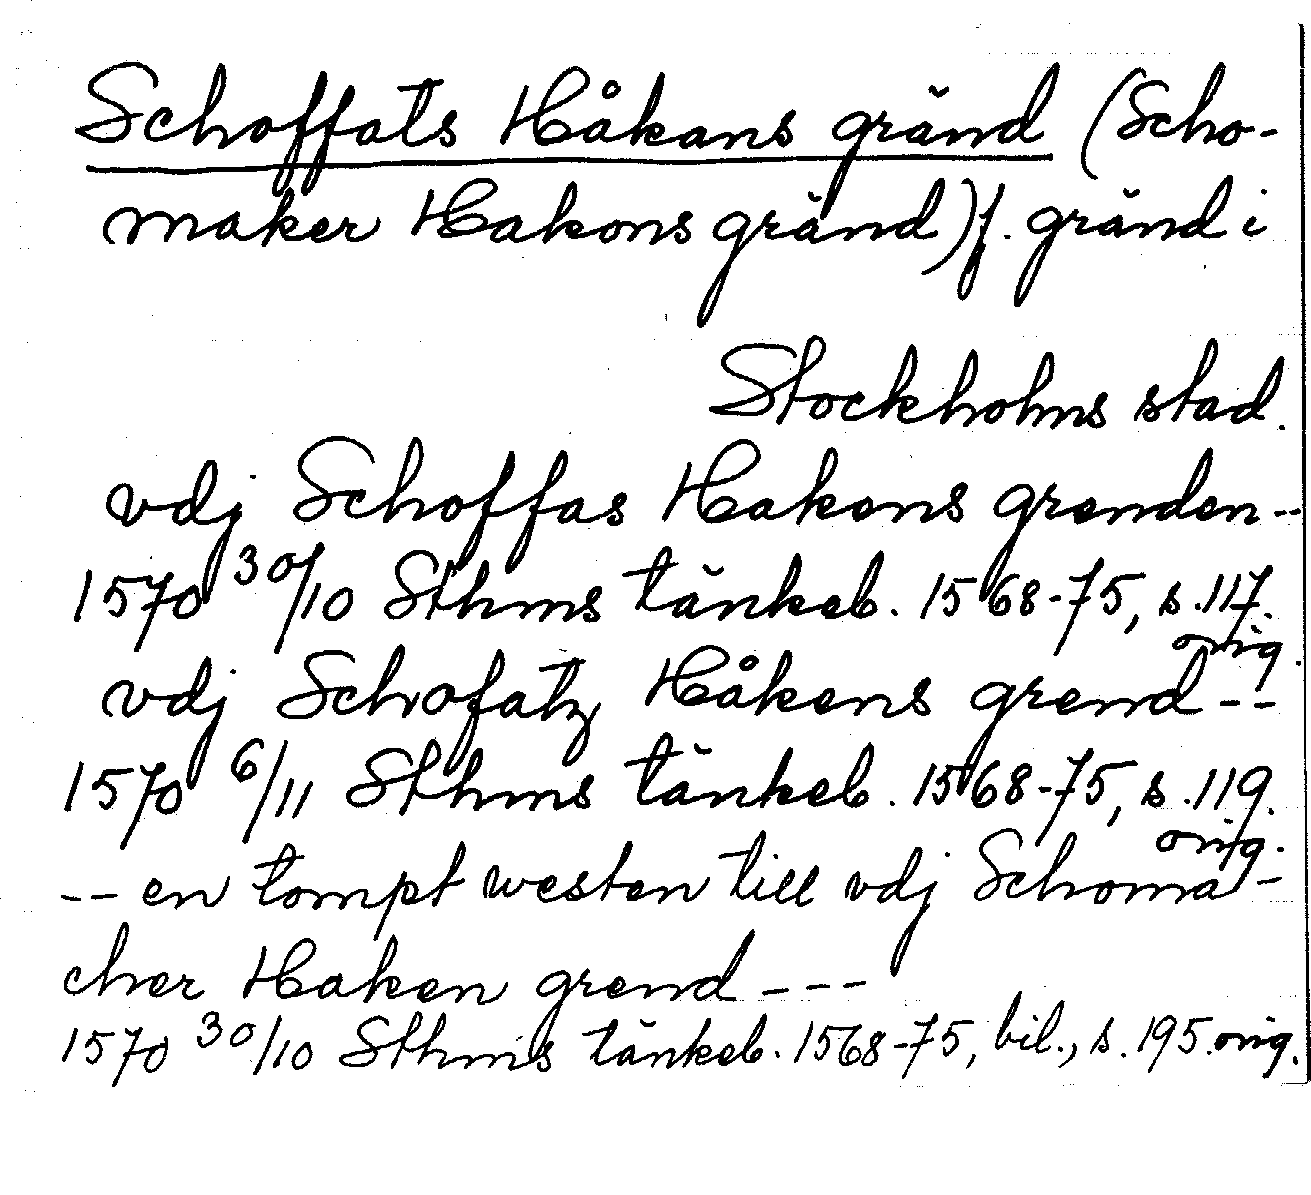 Schoffats Håkans gränd (Scho-
maker Hakons gränd) f. gränd i
Stockholms stad.
vdj Schoffas Hakens grenden --
1570 30/10 Sthms tänkeb. 1568-75, s. 117.
orig.
vdj Schofatz Håkens grend --
1570 6/11 Sthms tänkeb. 1568-75, s. 119.
orig.
-- en tompt westen till vdj Schoma-
cher Haken grend ---
1570 30/10 Sthms tänkeb. 1568-75, bil., s. 195. orig.